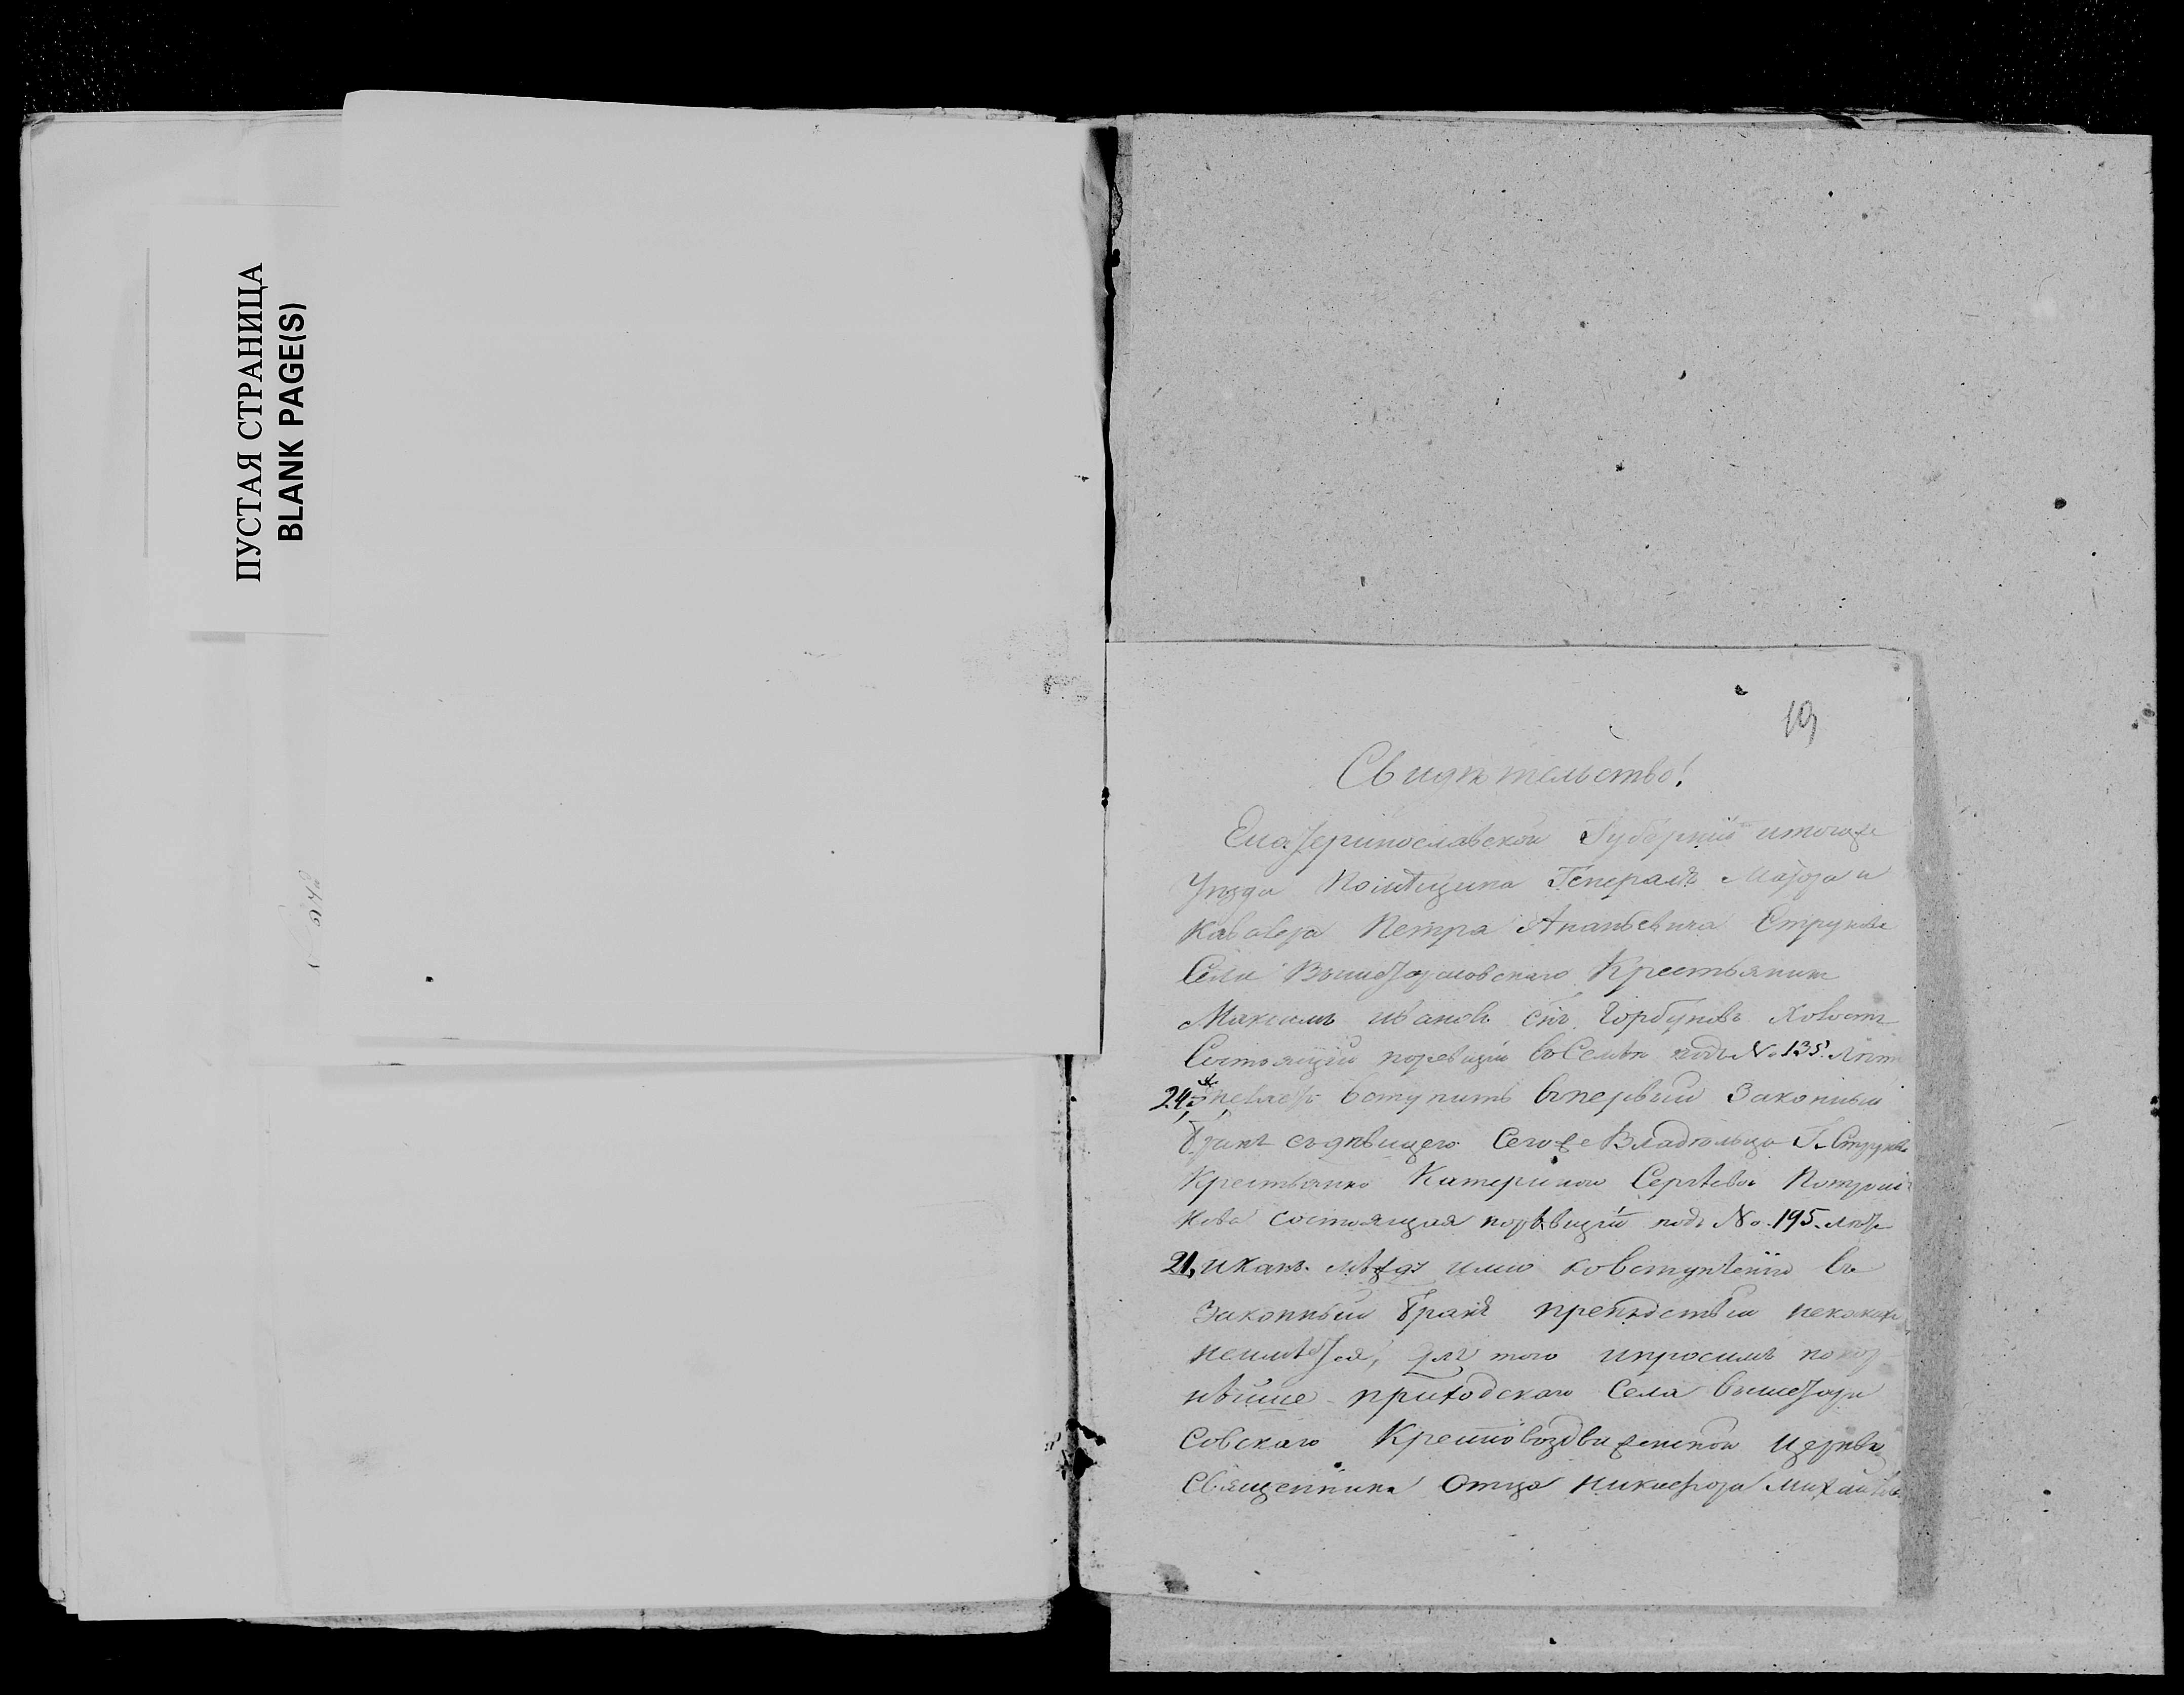 ПУСТАЯ СТРАНИЦА
BLANK PAGE(S)
19
Свидѣтельство!
Екатеринославской Губерніи итогоже
Уѣзда Помѣщика Генералъ Маіора и
Кавалера Петра Ананьевича Струкова
Села Вышетарасовскаго Крестьянинъ
Максимъ ивановъ снъ Горбуновъ Холостъ
Состоящій поревизіи воСемьѣ подъ № 135. Лѣтъ
24, вступить впервый Законный
бракъ съдѣвицею Сегоже Владѣльца Г. Струкова
Крестьянко Катериною Сергѣевою
состоящая порѣвизіи подъ № 195. лѣтъ
21, икакъ мѣжду ими ковступленію въ
Законный бракъ препядствія
неимѣется, для того ипросимъ
приходскаго Села вышетара
совскаго Крестовоздвиженской Церкви
Священника Отца никифора Михайлова